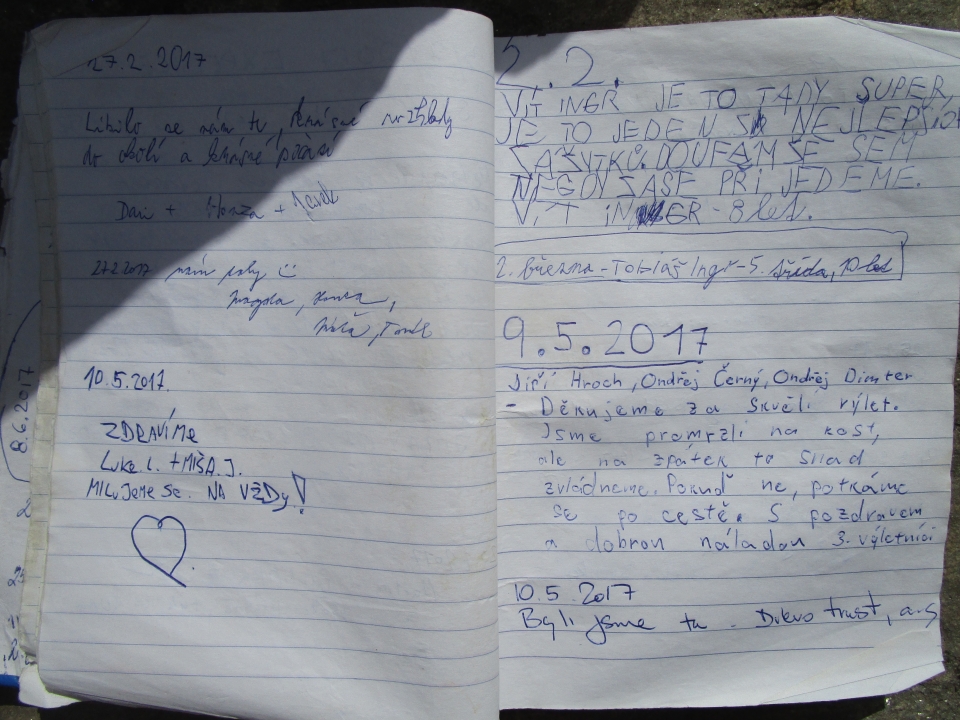 27.2.2017
Líbilo se nám tu, krásné rozhledy
do okolí a krásné počasí
Dan + Honza + Marek
27.2.2017
Magda,
10.5.2017.
ZDRAVÍME
Luke. L. + MÍŠA. J.
MILUJEME SE. NA VŽDY!
8.6.2017
2.2.
VÍT INGR JE TO TADY SUPER,
JE TO JEDEN NEJLEPŠ
ZÁŽYTKŮ. DOUFÁM ŽE SEM
ZASE PŘIJEDEME.
VÍT INGR - 8 let.
2. března - Tobiáš Ingr - 5. třída, 10 let
9.5.2017
Jiří Hroch, Ondřej Černý, Ondřej Dimter
- Děkujeme za skvělí výlet.
Jsme promrzlí na kost,
ale na zpátek to snad
zvládneme. Pokud ne, potkáme
se po cestě. S pozdravem
a dobrou náladou 3. výletníci
10.5.2017
Byli jsme tu - Drevo trust, a.s